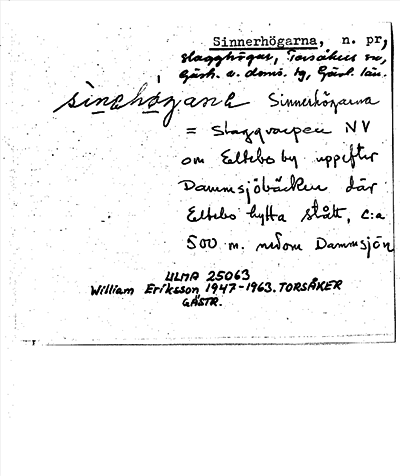 Sinnerhögarna, n. pr,
slagghögar, Torsåkers sn,
Gästr. ö. doms. tg, Gävl. län.
sinehögane Sinnerhögarna
= slaggvarpen NV
om Eltebo by uppefter
Dammsjöbäcken där
Eltebo hytta stått, c:a
500 m. nedom Dammsjön
ULMA 25063
William Eriksson 1947-1963. TORSÅKER
GÄSTR.